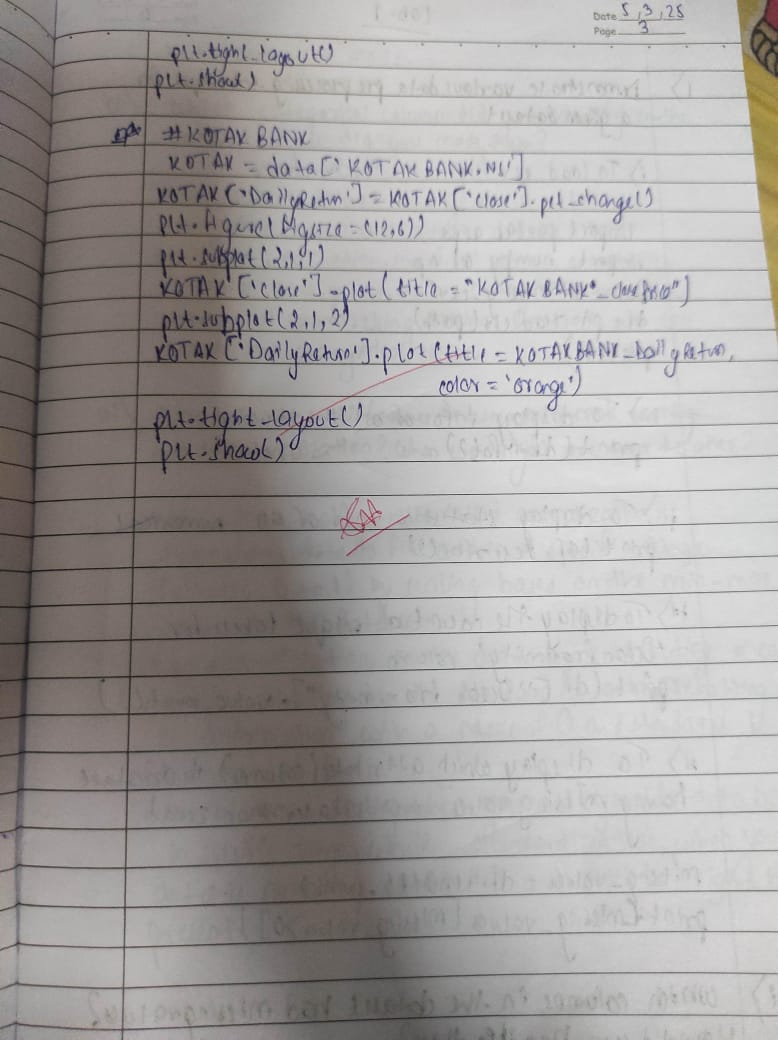 Date 5, 3, 25
Page 3
plt.tight_layout()
plt.show()
#KOTAK BANK
KOTAK = data['KOTAKBANK.NS']
KOTAK['DailyReturn'] = KOTAK['close'].pct_change()
plt.figure(figsize=(12,6))
plt.subplot(2,1,1)
KOTAK ['close'].plot(title = "KOTAKBANK"_close price"]
plt.subplot(2,1,2)
KOTAK ['DailyReturn'].plot(title = KOTAKBANK_Daily Return,
color = 'orange')
plt.tight_layout()
plt.show()